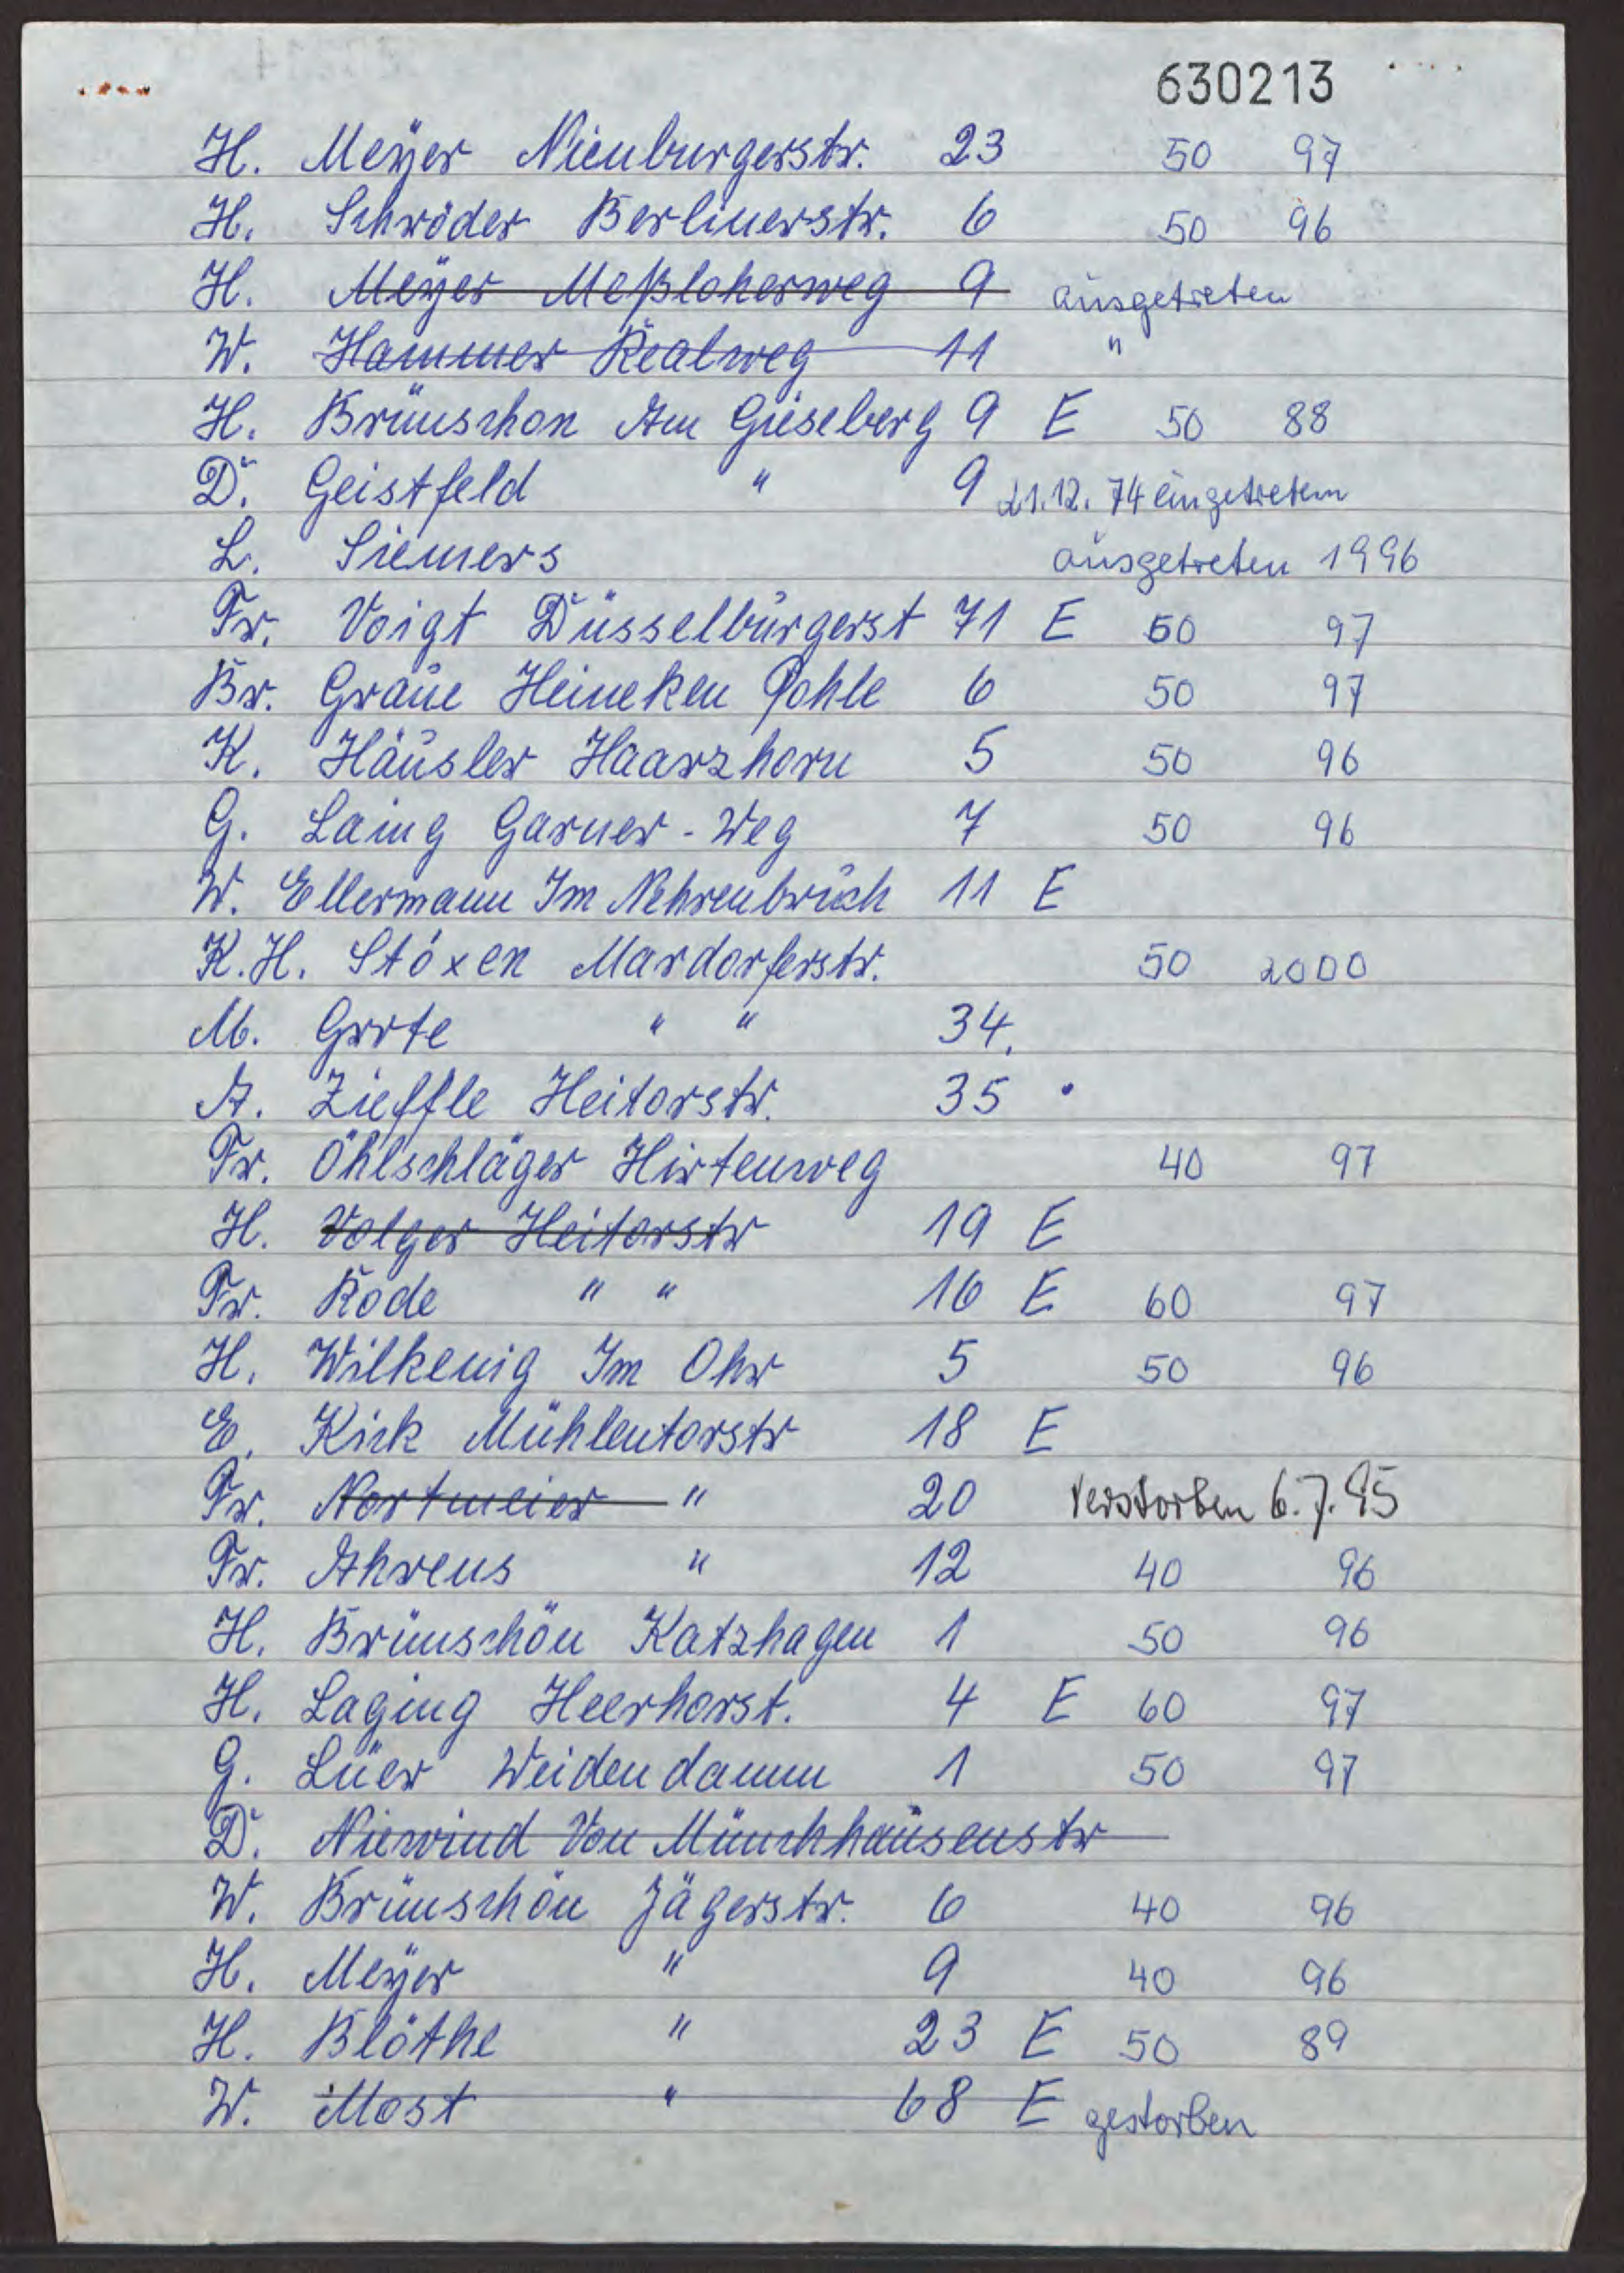 630213
H. Meyer Nienburgerstr. 23 50 97
H. Schröder Berlinerstr. 6 50 96
H. Meyer Meßloherweg 9 ausgetreten
W. Hammer Realweg 11 "
H. Brünschon Am Gieseberg 9 E 50 88
D. Geistfeld " 9 21.12.74 eingetreten
L. Siemers ausgetreten 1996
Fr. Voigt Düsselburgerst 71 E 60 97
Br. Graue Heineken Pohle 6 50 97
K. Häusler Haarzhorn 5 50 96
G. Laing Garner-Weg 7 50 96
W. Ellermann Im Nehrenbruch 11 E
K.H. Stöxen Mardorferstr. 50 2000
M. Grote " " 34.
A. Zieffle Heitorstr. 35
Fr. Öhlschläger Hirtenweg 40 97
H. Volger Heitorstr 19 E
Fr. Rode " " 16 E 60 97
H. Wilkenig Im Ohr 5 50 96
E. Kirk Mühlentorstr 18 E
Fr. Nortmeier " 20 Verstorben 6.7.95
Fr. Ahrens " 12 40 96
H. Brünschön Katzhagen 1 50 96
H. Laging Heerhorst. 4 E 60 97
G. Lüer Weidendamm 1 50 97
D. Niewind Von Münchhausenstr
W. Brünschön Jägerstr. 6 40 96
H. Meyer " 9 40 96
H. Blöthe " 23 E 50 89
W. Most " 68 E gestorben